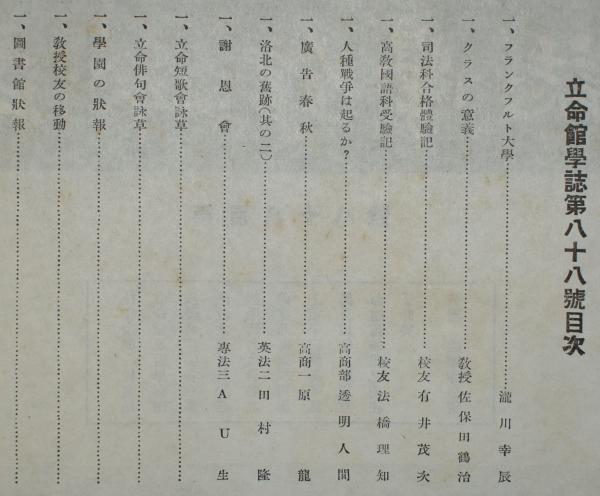 立命館學誌第八十八號目次
一、フランクフルト大學……瀧川幸辰
一、クラスの意義……教授 佐保田鶴治
一、司法科合格體驗記……校友 有井茂次
一、高敎國語科受驗記……校友 法橋理知
一、人種戰爭は起るか?……高商部 透明人間
一、廣告春秋……高商一 原龍
一、洛北の舊跡(其の二)……英法二 田村隆
一、謝恩會……專法三 AU生
一、立命短歌會詠草……
一、立命俳句會詠草……
一、學園の狀報……
一、敎授校友の移動……
一、圖書館狀報……